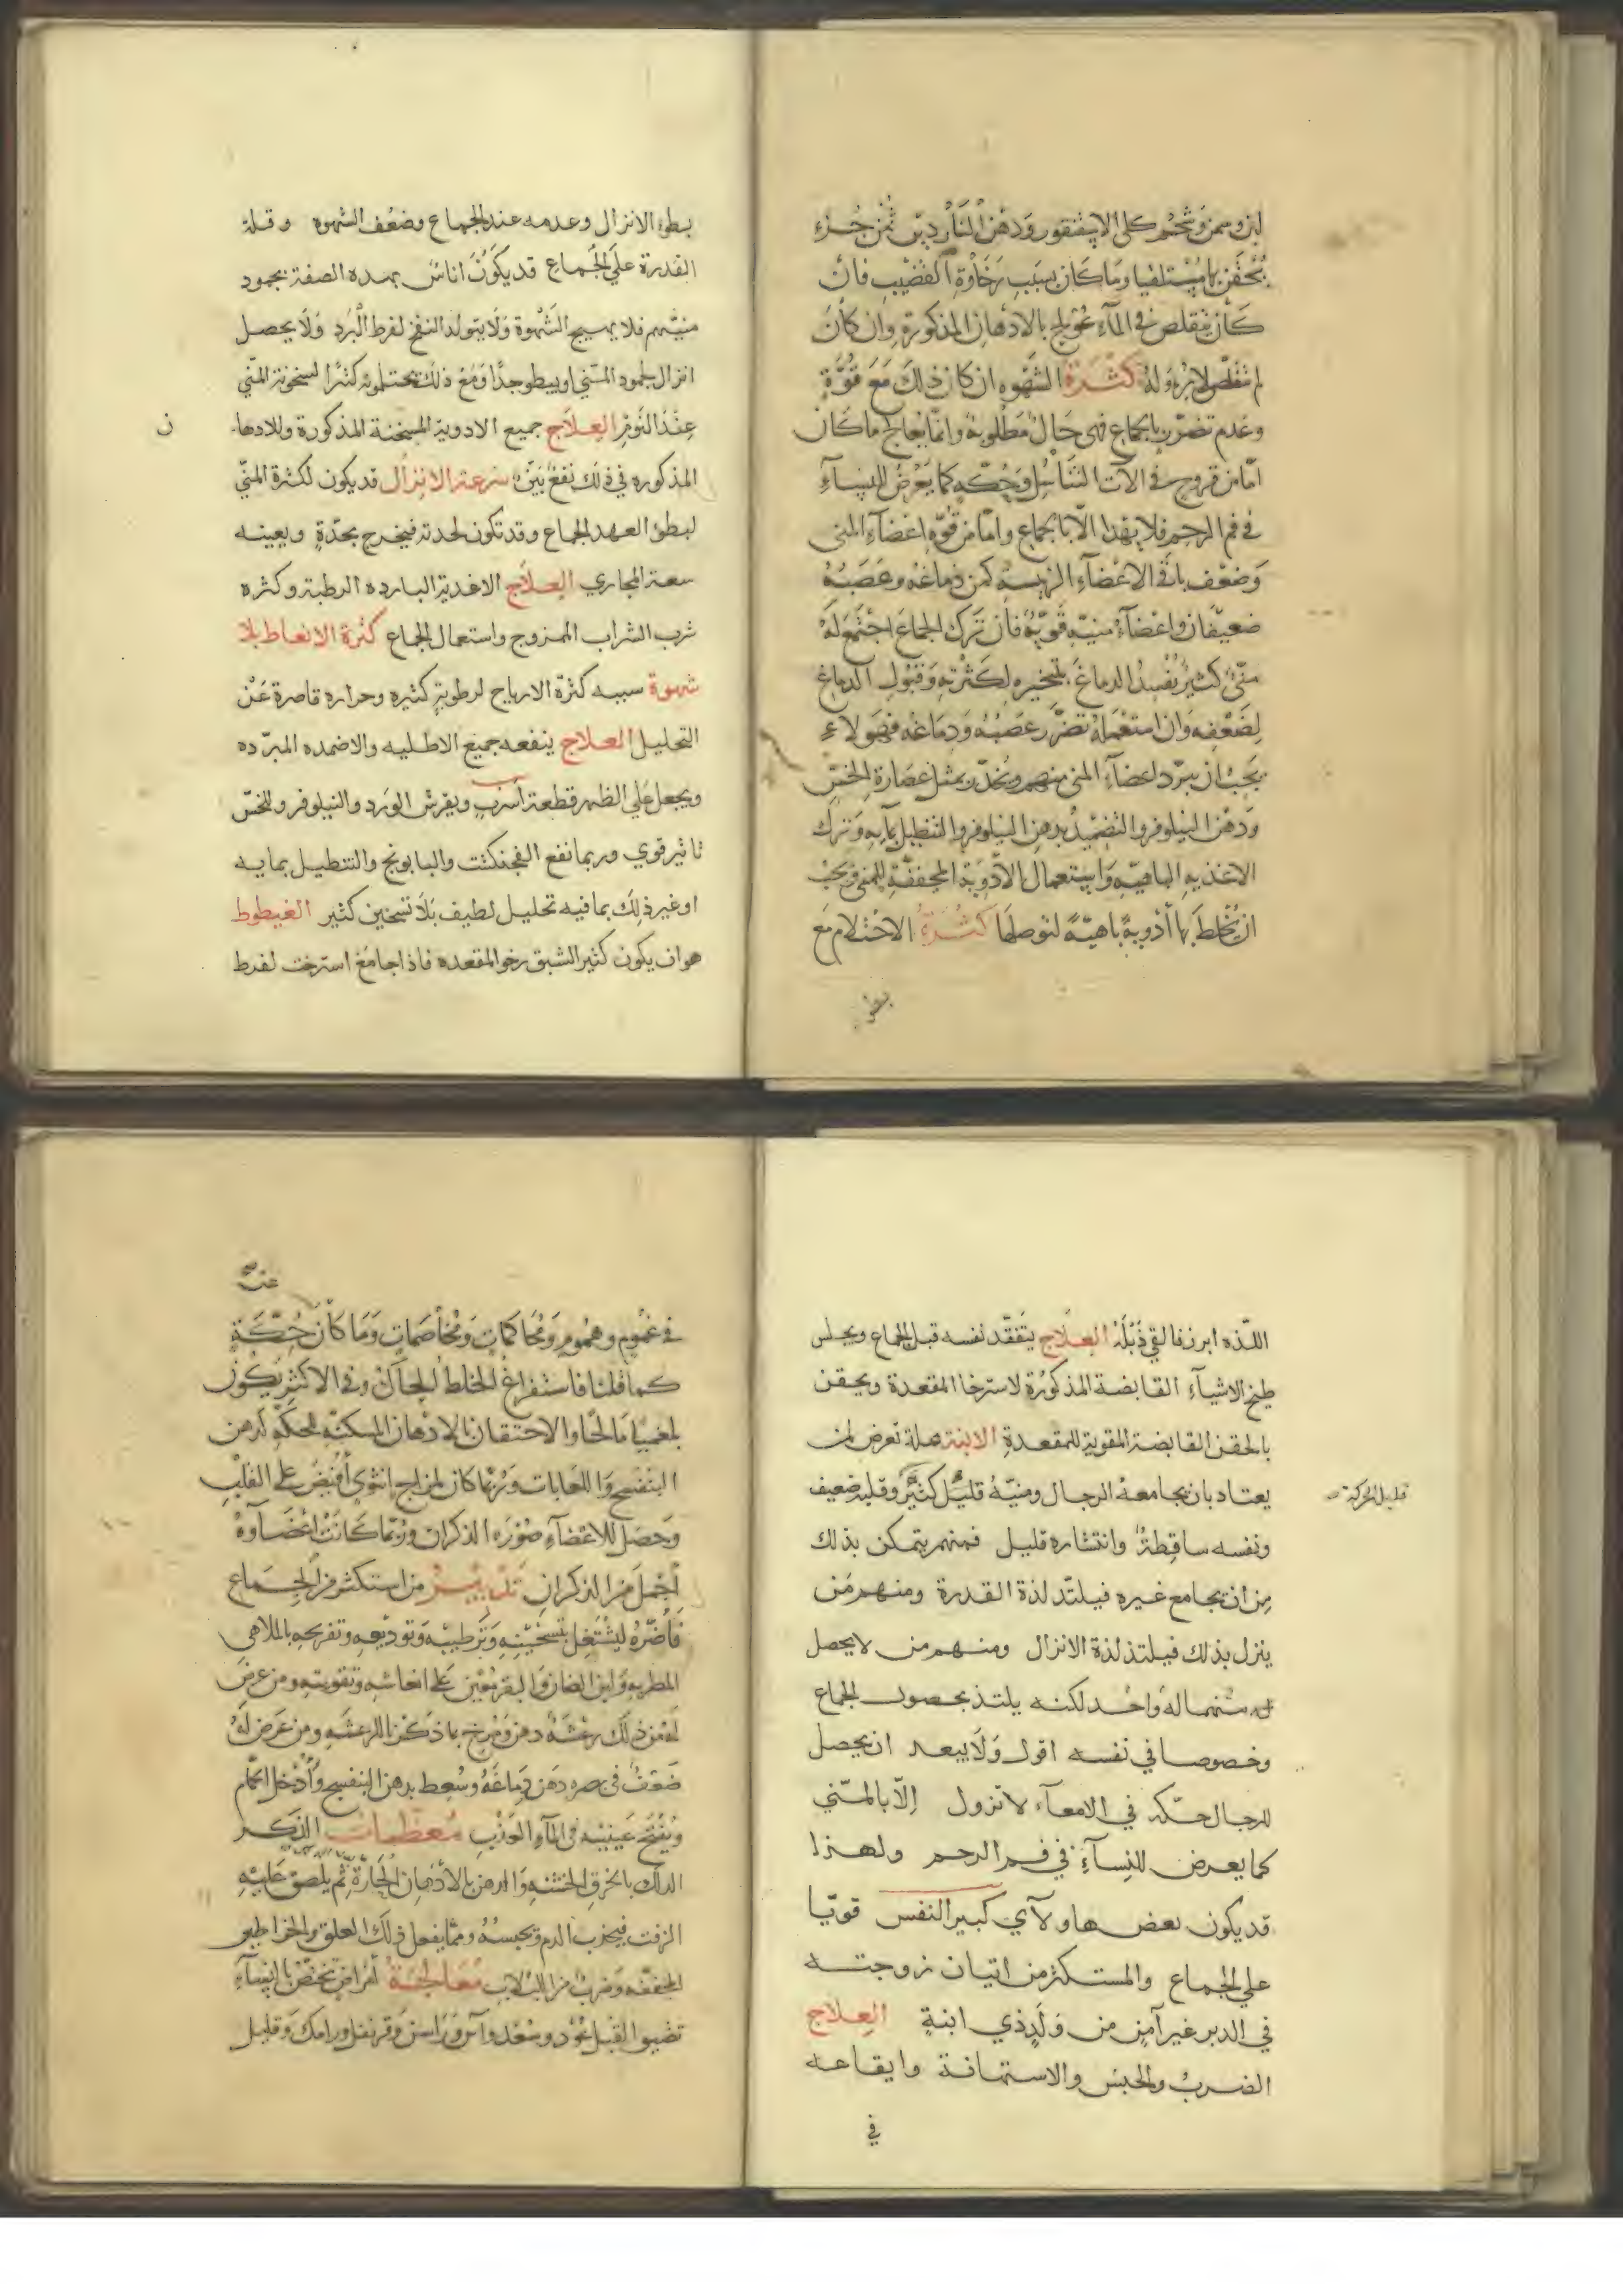 لبن وسمن وشحم كلى الاسقنقور ودهن النارديـن ثمن جزء
يحقن بها مستلقيا وما كان بسبب رخاوة القضيب فان
كان يتقلص في الماء عولج بالادهان المذكورة وان كان
لم يتقلص لا برء له كثرة الشهوه ان كان ذلك مع قوة
وعدم تضرر بالجماع فهى حال مطلوبة وانما يعالج ما كان
اما من قروح في الات التناسل وحكه كما يعرض للنساء
في فم الرحم فلا يهدا الا بالجماع واما من قوة اعضاء المنى
وضعف باقي الاعضاء الرئيسه كمن دماغه وعصبه
ضعيفان واعضاء منيه قوية فان ترك الجماع اجتمع له
منى كثير يفسد الدماغ بتبخيره لكثرته وقبول الدماغ
لضعفه وان استعمله تضرر عصبه ودماغه فهولاء
يجب ان يبرد اعضاء المنى منهم ويخدر بمثل عصارة الخس
ودهن النيلوفر والتضميد بدهن النيلوفر والتنطيل بمايه وترك
الاغذيه الباهيه واستعمال الادوية المجففة للمنى ويجب
ان يخلط بها أدوية باهية لتوصلها كثرة الاحتلام مع
بطو
بطوء الانزال وعدمه عند الجماع وضعف الشهوه وقلة
القدرة على الجماع قد يكون اناس بهده الصفة بجمود
منيهم فلا يهيج الشهوة ولا يتولد النفخ لفرط البرد ولا يحصل
انزال لجمود المني او يبطو جدا ومع ذلك يحتلمون كثيرا لسخونة المني
عند النوم العلاج جميع الادوية المسخنة المذكورة وللادها
ن
المذكوره في ذلك نفع بين سرعة الانزال قد يكون لكثرة المني
لبطؤ العهد لجماع وقد تكون لحدته فيخرج بحدة ويعينه
سعة المجاري العلاج الاغدية البارده الرطبة وكثره
شرب الشراب الممزوج واستعمال الجماع كثرة الانعاظ بلا
شهوة سببه كثرة الارياح لرطوبة كثيره وحراره قاصرة عن
التحليل العلاج ينفعه جميع الاطليه والاضمده المبرده
ويجعل على الظهر قطعة اسرب ويفرش الورد والنيلوفر وللخس
تاثير قوي وربما نفع الفنجنكشت والبابونج والتنطيل بمايه
او غير ذلك بما فيه تحليل لطيف بلا تسخين كثير الغيطوط
هو ان يكون كثير الشبق رخو المقعده فاذا جامع استرخت لفرط
اللذه ابرز فالقي ذبله العلاج يتفقد نفسه قبل الجماع ويجلس
طبخ الاشياء القابضة المذكورة لاسترخا المقعدة ويحقن
بالحقن القابضة المقوية للمقعدة الابنة علة تعرض لمن
يعتاد بان يجامعه الرجال ومنيه قليل كثير وقلبه ضعيف
قليل الحركة صح
ونفسه ساقطة وانتشاره قليل فمنهم يتمكن بذلك
من ان يجامع غيره فيلتد لذة القدرة ومنهم من
ينزل بذلك فيلتذ لذة الانزال ومنهم من لا يحصل
له منهما له واحد لكنه يلتذ بحصول الجماع
وخصوصا في نفسه اقول ولا يبعد ان يحصل
للرجال حكة في الامعاء لا تزول الا بالمني
كما يعرض للنساء في فم الرحم ولهذا
قد يكون بعض هاولآي كبير النفس قويا
على الجماع والمستكثر من اتيان زوجته
في الدبر غير آمن من ولد ذي ابنة العلاج
الضرب والحبس والاستهانة وايقاعه
في
عنه
في غموم وهموم ومحاكمات ومخاصمات وما كان حكة
كما قلنا فاستفراغ الخلط الحاك وفي الاكثر يكون
بلغميا مالحا والاحتقان بالادهان المسكنة للحكة كدهن
البنفسج واللعابات وربما كان لمزاج انثوى أفيض على القلب
وحصل للاعضاء صورة الذكران وربما كانت اعضاوه
أجمل من الذكران تدبير من استكثر من الجماع
فأضره ليشتغل بتسخينه وترطيبه وتوديعه وتفريحه بالملاهي
المطربه ولبن الضان والبقر يعين على انعاشه وتقويته ومن عرض
له من ذلك رعشة دهن ومرخ بما ذكرنا للرعشه ومن عرض له
ضعف في بصره دهن دماغه وسعط بدهن البنفسج وأدخل الحمام
ويفتح عينيه في الماء العذب معظمات الذكر
الدلك بالخرق الخشنه والدهن بالادهان الحارة ثم يلصق عليه
الزفت فيجذب الدم ويحبسه ومما يفعل ذلك العلق والخراطين
المجففه وضرب من اللبلاب معالجة أمراض تختص بالنساء
تضيق القبل عود وسعد وآس وراسن وقرنفل ورامك وقليل